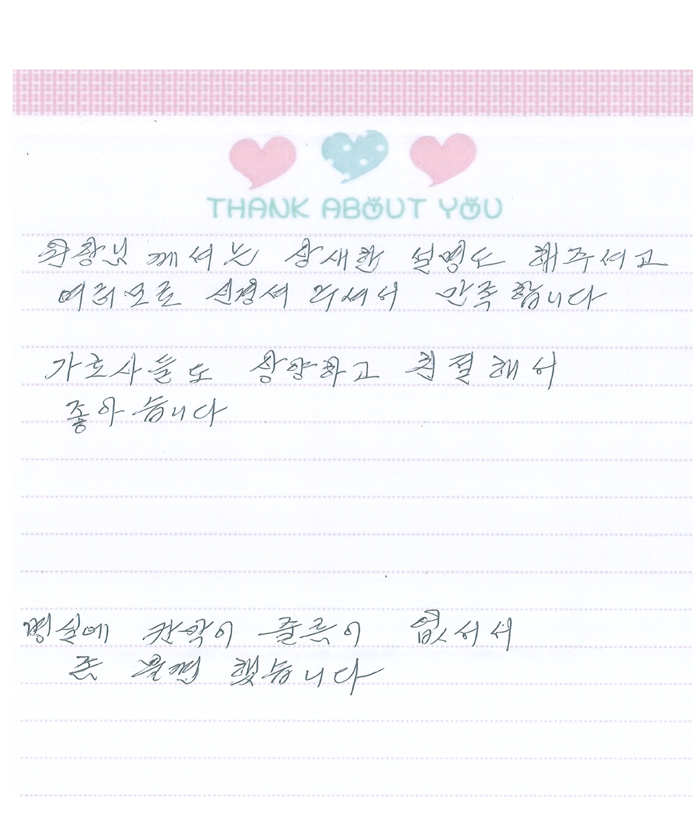 THANK ABOUT YOU
원장님 께서는 상새한 설명도 해주셔고
여러모로 신경써 주셔서 만족합니다
가호사들도 상양하고 친절해서
좋아습니다
병실에 칸막이 없서서
좀 불편 했습니다